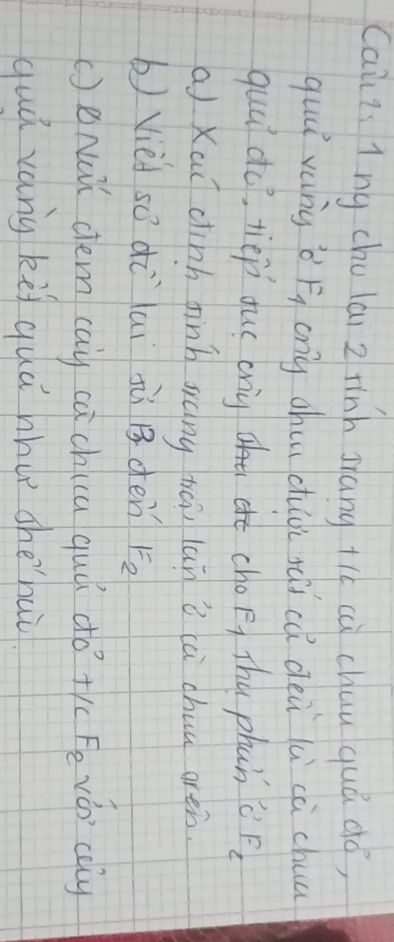 Câu 2. 1 ng cho lai 2 tính trạng t/c cà chua quả đỏ,
quả vàng ở F1 ông thu được tất cả đều là cà chua
quả đỏ, tiếp tục ông cho F1 thụ phấn ở F2
a) Xác định tính trạng trội lặn ở cà chua trên.
b) Viết sơ đồ lai từ P đến F2
c) Nếu đem cây cà chua quả đỏ t/c F2 với cây
quả vàng kết quả như thế nào.